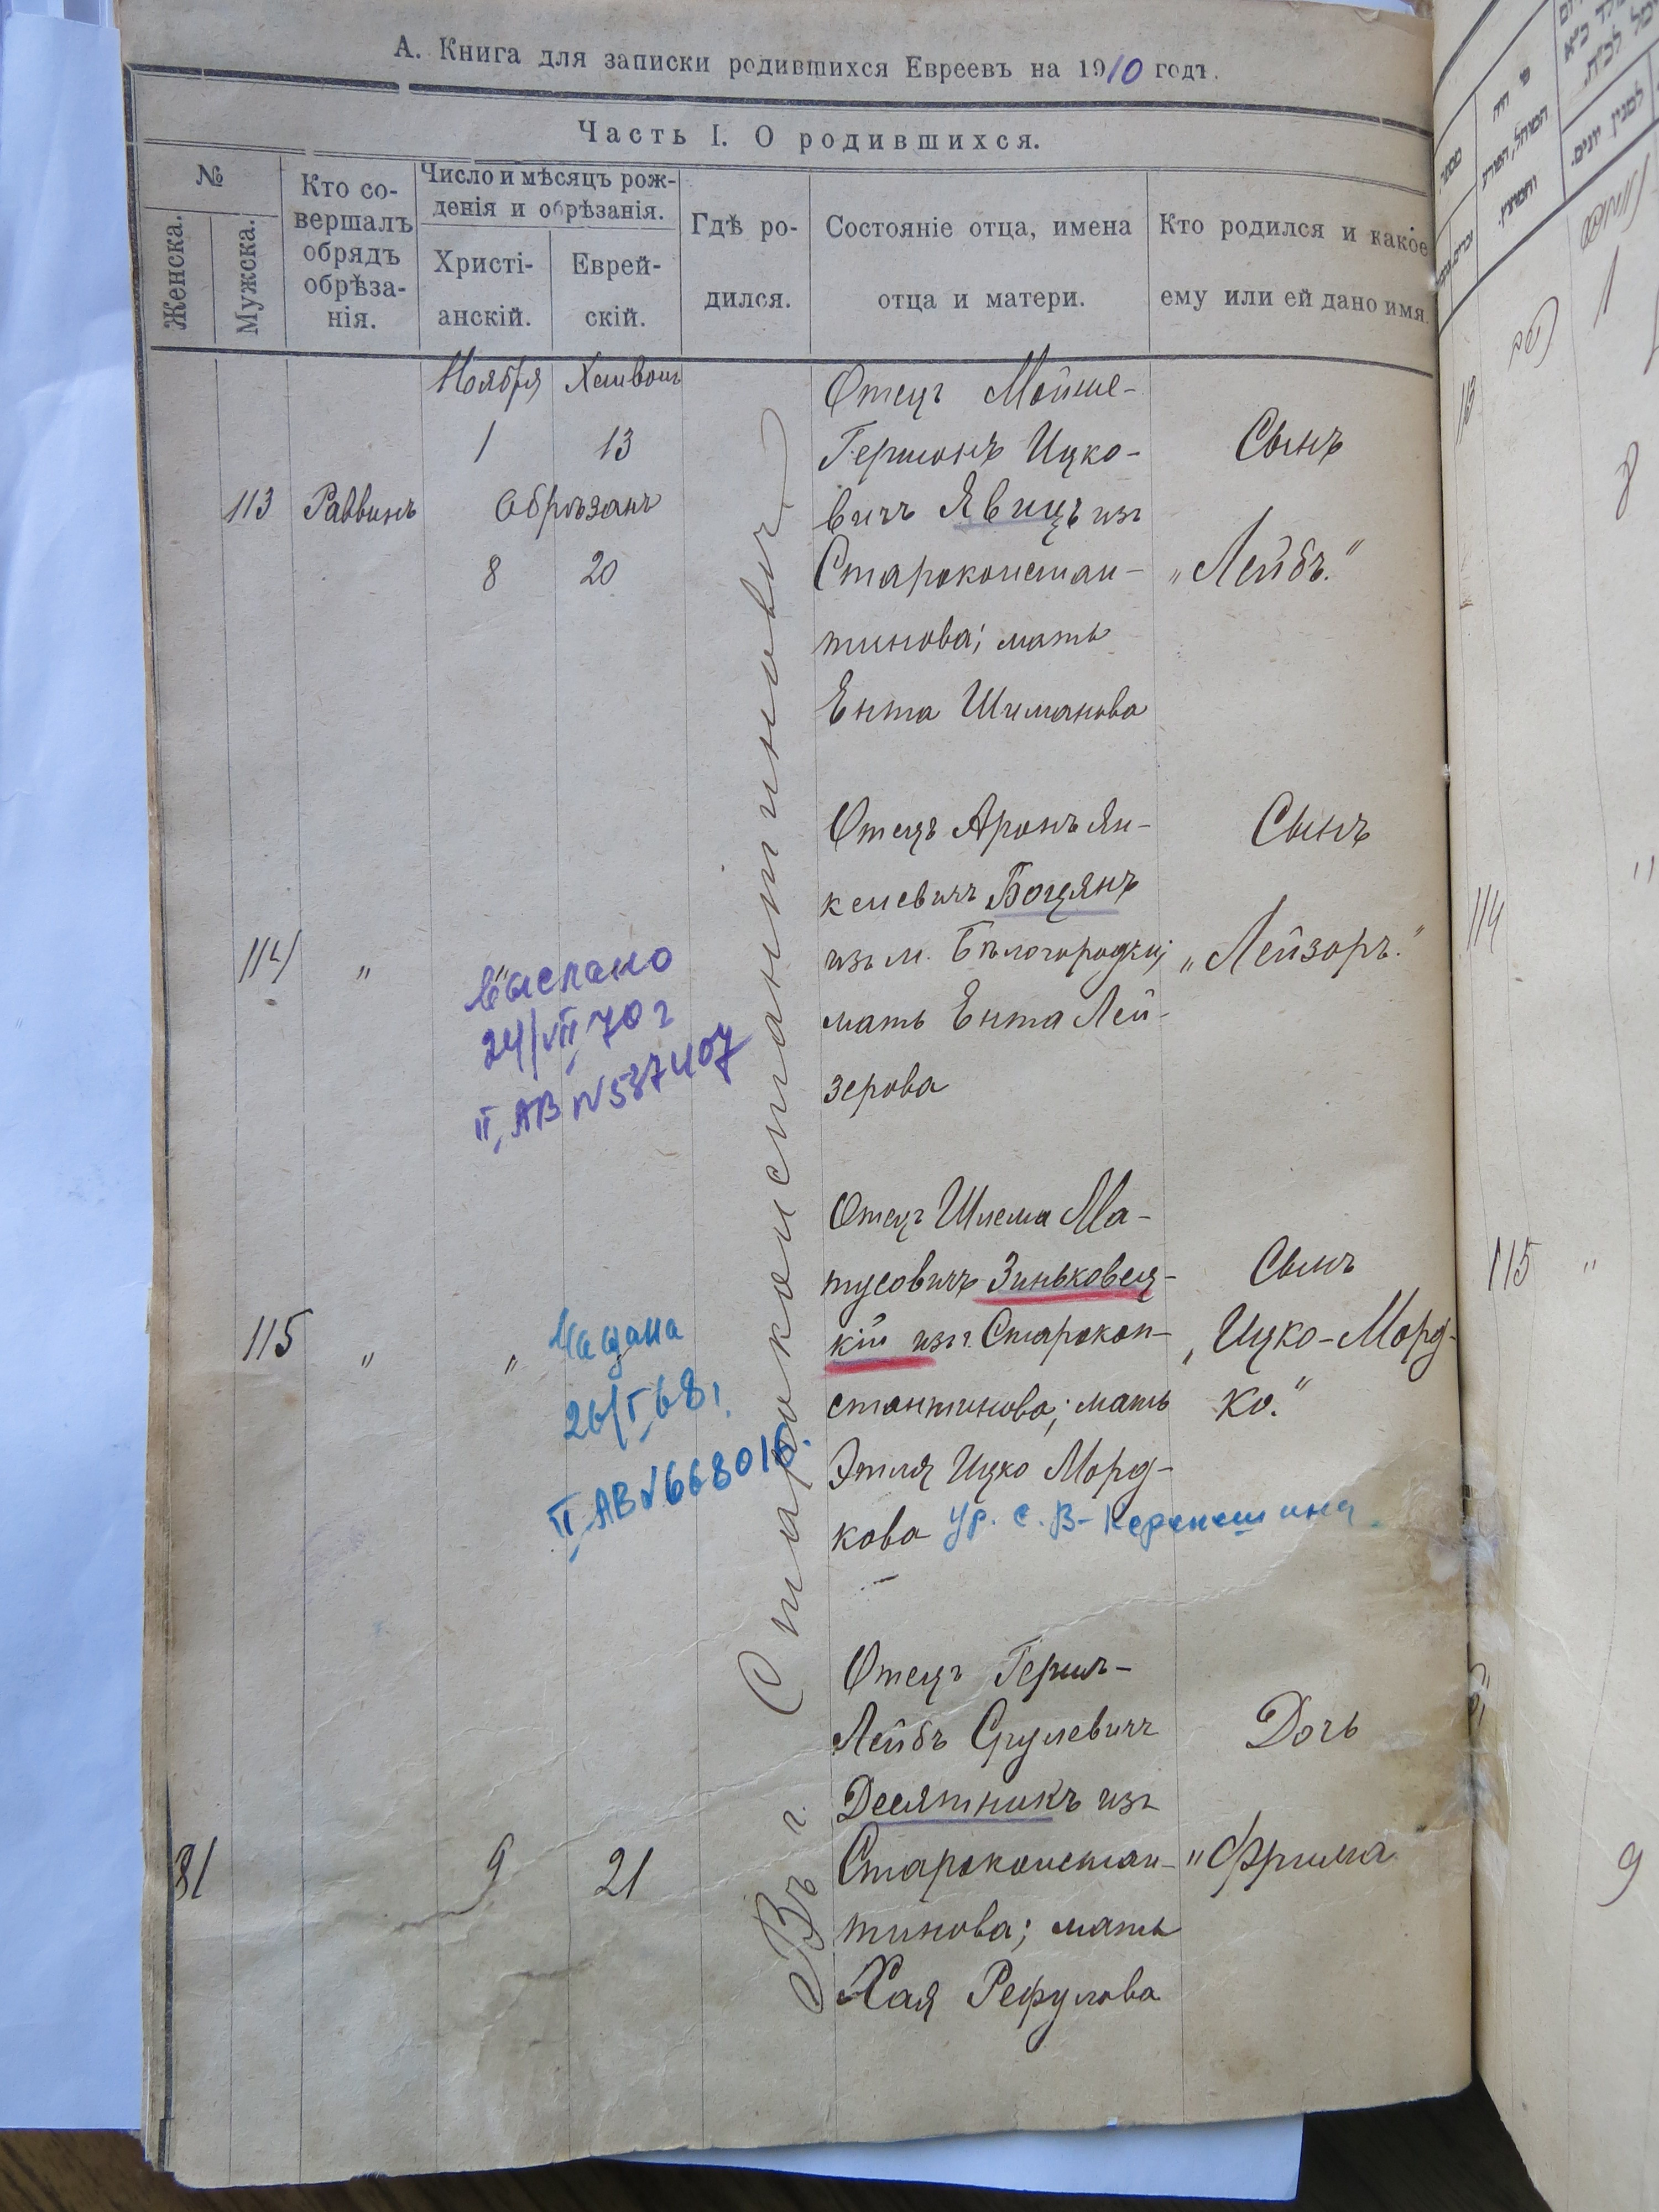 А. Книга для записки родившихся Евреевъ на 1910 годъ.
Часть I. О родившихся.
№
Женска.
Мужска.
Кто со-
вершалъ
обрядъ
обрѣза-
нія.
Число и мѣсяцъ рож-
денія и обрѣзанія.
Христі-
анскій.
Еврей-
скій.
Гдѣ ро-
дился.
Состояніе отца, имена
отца и матери.
Кто родился и какое
ему или ей дано имя.
Въ г. Староконстантиновѣ
Ноября Хешвонъ
1 13
113 Раввинъ Обрѣзанъ
8 20
Отецъ Мойше-
Гершонъ Ицко-
вичъ Явицъ изъ
Староконстан-
тинова; мать
Ента Шиманова
Сынъ
„Лейбъ.“
114 „ „
Выслано
24/VII 70 г
II АВ №537407
Отецъ Аронъ Ян-
келевичъ Боцянъ
изъ м. Бѣлогородки;
мать Ента Лей-
зерова
Сынъ
„Лейзоръ.“
115 „ „
Надана
26/I 68 г.
II АВ №668016.
Отецъ Шлема Ма-
тусовичъ Зиньковец-
кій изъ г. Старокон-
стантинова; мать
Этля Ицко Морд-
кова ур. с. В-
Сынъ
„Ицко-Морд-
ко.“
81 9 21
Отецъ Герш-
Лейбъ Срулевичъ
Десятникъ изъ
Староконстан-
тинова; мать
Хая Рефулова
Дочь
„Фрима
113
8
114 „
115 „
9